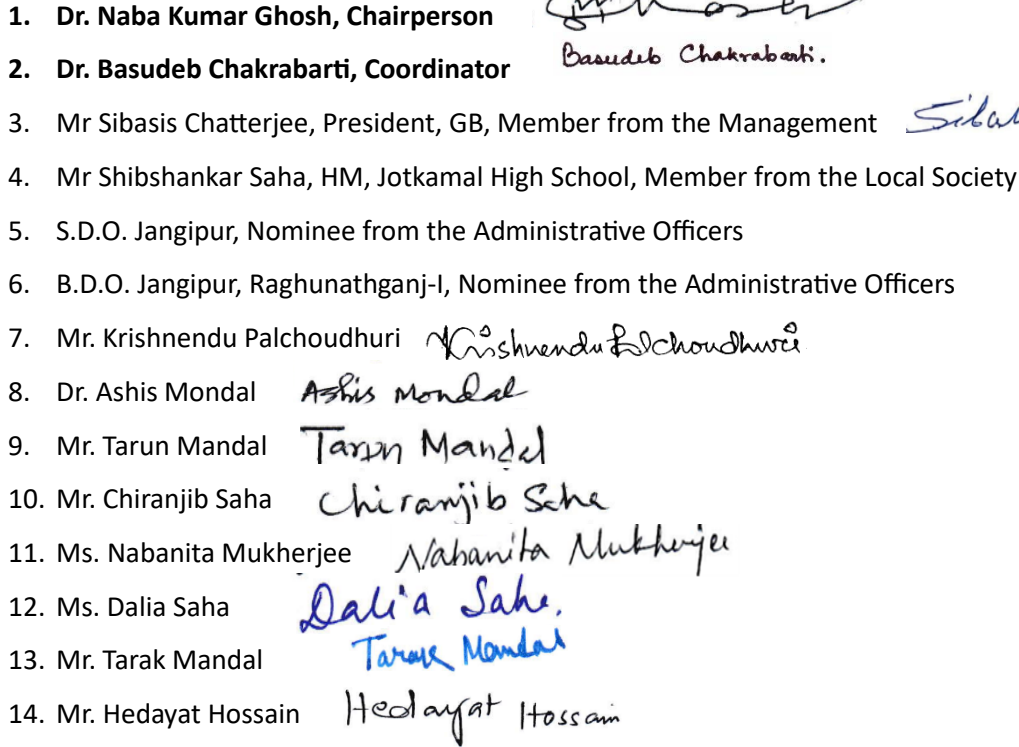 1. Dr. Naba Kumar Ghosh, Chairperson
2. Dr. Basudeb Chakrabarti, Coordinator Basudeb Chakrabarti.
3. Mr Sibasis Chatterjee, President, GB, Member from the Management
4. Mr Shibshankar Saha, HM, Jotkamal High School, Member from the Local Society
5. S.D.O. Jangipur, Nominee from the Administrative Officers
6. B.D.O. Jangipur, Raghunathganj-I, Nominee from the Administrative Officers
7. Mr. Krishnendu Palchoudhuri Krishnendu Palchoudhuri
8. Dr. Ashis Mondal Ashis Mondal
9. Mr. Tarun Mandal Tarun Mandal
10. Mr. Chiranjib Saha Chiranjib Saha
11. Ms. Nabanita Mukherjee Nabanita Mukherjee
12. Ms. Dalia Saha Dalia Saha.
13. Mr. Tarak Mandal Tarak Mandal
14. Mr. Hedayat Hossain Hedayat Hossain